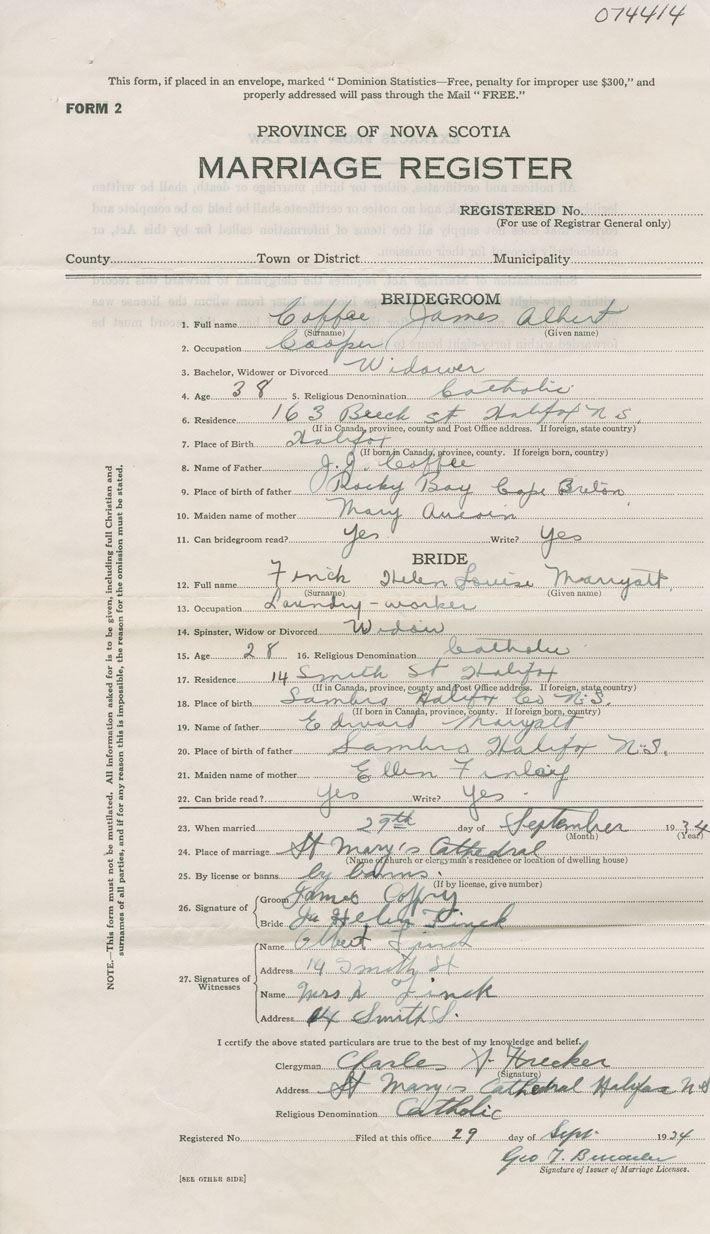 074414
This form, if placed in an envelope, marked “ Dominion Statistics—Free, penalty for improper use $300,” and
properly addressed will pass through the Mail “ FREE.”
FORM 2
PROVINCE OF NOVA SCOTIA
MARRIAGE REGISTER
REGISTERED No.
(For use of Registrar General only)
County Town or District Municipality
BRIDEGROOM
1. Full name Coffee James Albert
(Surname) (Given name)
2. Occupation Cooper
3. Bachelor, Widower or Divorced Widower
4. Age 38 5. Religious Denomination Catholic
6. Residence 163 Beech St Halifax N S.
(If in Canada, province, county and Post Office address. If foreign, state country)
7. Place of Birth Halifax
(If born in Canada, province, county. If foreign born, country)
8. Name of Father J. J. Coffee
9. Place of birth of father Rocky Bay Cape Breton
10. Maiden name of mother Mary Aucoin
11. Can bridegroom read? Yes Write? Yes
BRIDE
12. Full name Finck Helen Louise Marryatt
(Surname) (Given name)
13. Occupation Laundry-worker
14. Spinster, Widow or Divorced Widow
15. Age 28 16. Religious Denomination Catholic
17. Residence 14 Smith St Halifax
(If in Canada, province, county and Post Office address. If foreign, state country)
18. Place of birth Sambro Halifax Co N.S.
(If born in Canada, province, county. If foreign born, country)
19. Name of father Edward Maryatt
20. Place of birth of father Sambro Halifax N.S.
21. Maiden name of mother Ellen Finlay
22. Can bride read? Yes Write? Yes
23. When married 29th day of September 1934
(Month) (Year)
24. Place of marriage St Mary's Cathedral
(Name of church or clergyman's residence or location of dwelling house)
25. By license or banns by banns.
(If by license, give number)
26. Signature of Groom James
Bride Helen Finck
27. Signatures of Witnesses Name Albert Finck
Address 14 Smith St
Name Mrs A Finck
Address 14 Smith S.
I certify the above stated particulars are true to the best of my knowledge and belief.
Clergyman Charles
(Signature)
Address St Mary's Cathedral Halifax N S
Religious Denomination Catholic
Registered No. Filed at this office 29 day of Sept. 1934
Geo
Signature of Issuer of Marriage Licenses.
[SEE OTHER SIDE]
NOTE.—This form must not be mutilated. All information asked for is to be given, including full Christian and
surnames of all parties, and if for any reason this is impossible, the reason for the omission must be stated.